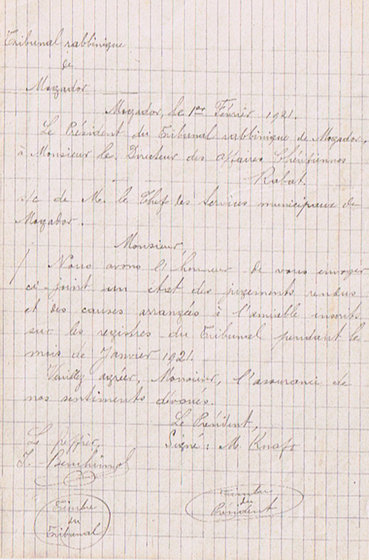 Tribunal rabbinique
de
Mogador
Mogador, le 1er Février 1921.
Le Président du Tribunal rabbinique de Mogador,
à Monsieur le Directeur des Affaires Chérifiennes
Rabat.
s/c de M. le Chef des Services municipaux de
Mogador.
Monsieur,
Nous avons l'honneur de vous envoyer
ci-joint un état des jugements rendus
et des causes arrangées à l'amiable inscrits
sur les registres du Tribunal pendant le
mois de Janvier 1921.
Veuillez agréer, Monsieur, l'assurance de
nos sentiments dévoués.
Le Président,
Signé: M. Knafo
Le greffier,
J. Benchimol
Timbre
du
Tribunal
Timbre
du
Président